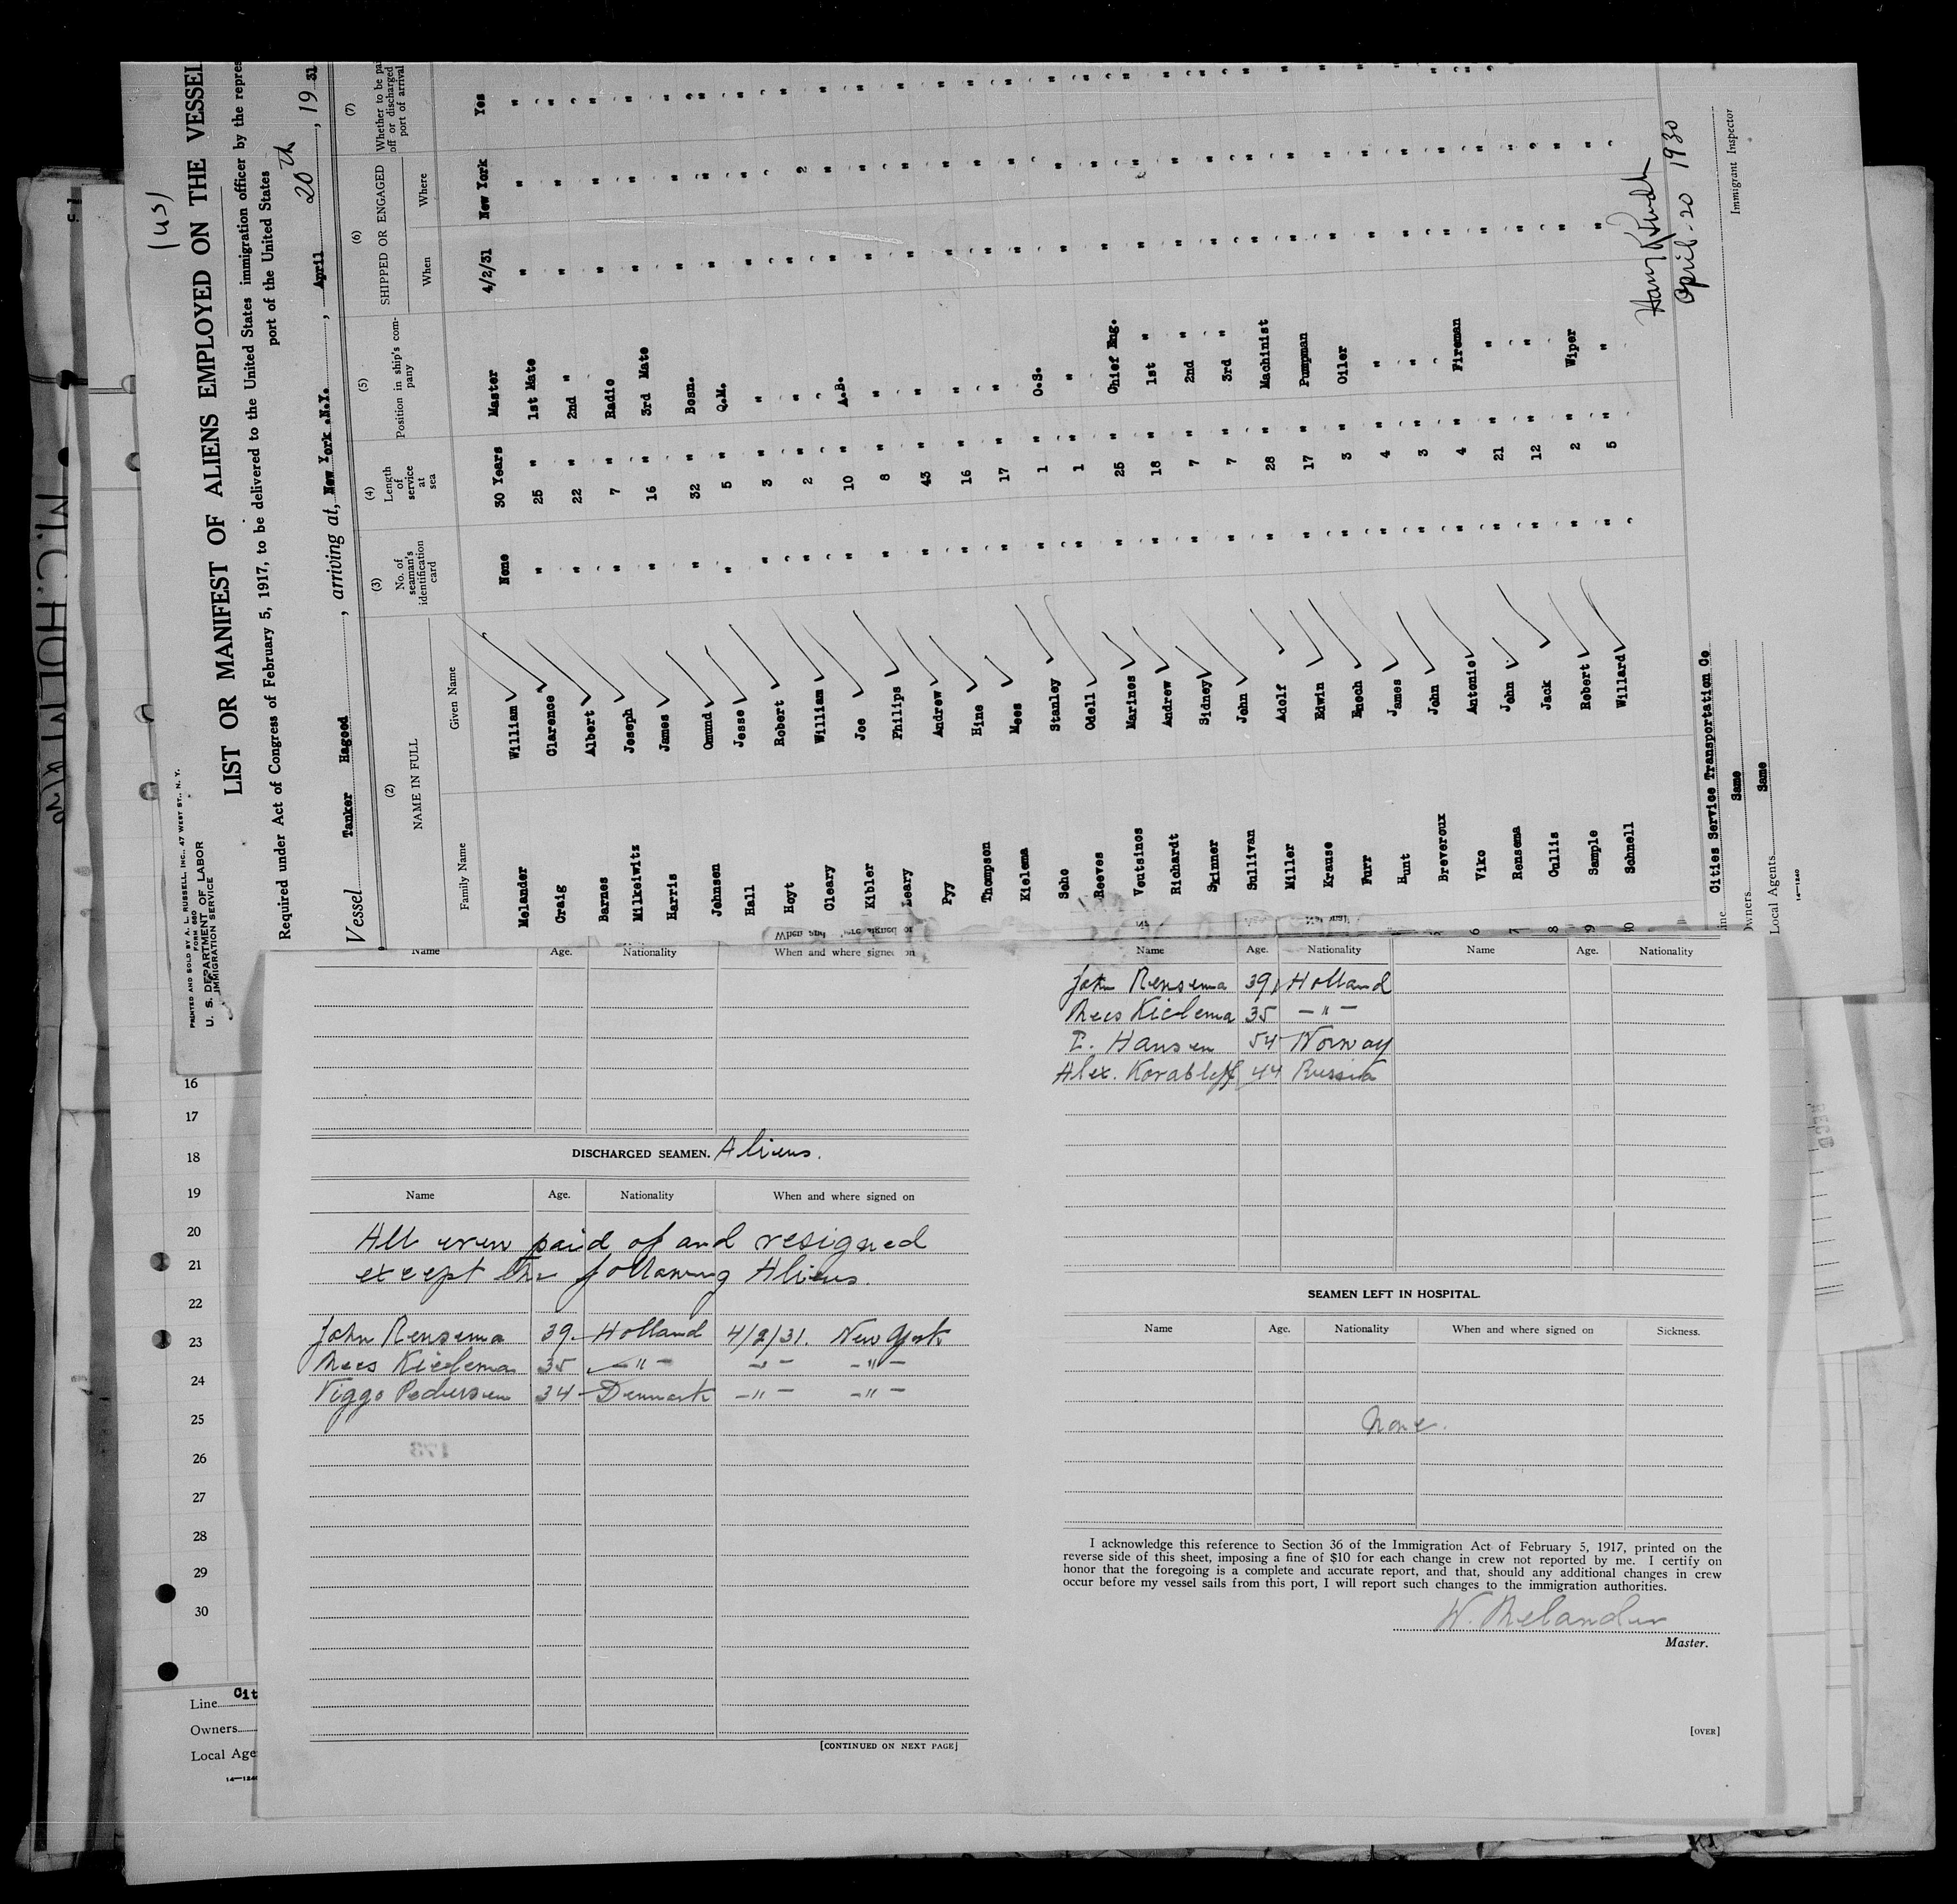 (us)
PRINTED AND SOLD BY A. L. RUSSELL, INC., 47 WEST ST., N. Y.
FORM 680
U. S. DEPARTMENT OF LABOR
IMMIGRATION SERVICE
LIST OR MANIFEST OF ALIENS EMPLOYED ON THE VESSEL
Required under Act of Congress of February 5, 1917, to be delivered to the United States immigration officer by the repres
port of the United States
Vessel Tanker Hagood, arriving at, New York .N.Y., April 20th, 19 31
(2) NAME IN FULL
Family Name Given Name
(3) No. of seaman's identification card
(4) Length of service at sea
(5) Position in ship's company
(6) SHIPPED OR ENGAGED
When Where
(7) Whether to be pai off or discharged port of arrival
Melander William None 30 Years Master 4/2/31 New York Yes
Craig Clarence " 25 " 1st Mate " " "
Barnes Albert " 22 " 2nd " " " "
Milkeiwitz Joseph " 7 " Radio " " "
Harris James " 16 " 3rd Mate " " "
Johnsen Omund " 32 " Bosn. " " "
Hall Jesse " 5 " Q.M. " " "
Hoyt Robert " 3 " " " " "
Cleary William " 2 " " " " "
Kibler Joe " 10 " A.B. " " "
Leary Philips " 8 " " " " "
Pyy Andrew " 43 " " " " "
Thompson Hine " 16 " " " " "
Kielema Mees " 17 " " " " "
Sehe Stanley " 1 " O.S. " " "
Reeves Odell " 1 " " " " "
Voutsinos Marinos " 25 " Chief Eng. " " "
Richardt Andrew " 18 " 1st " " " "
Skinner Sidney " 7 " 2nd " " " "
Sullivan John " 7 " 3rd " " " "
Miller Adolf " 28 " Machinist " " "
Krause Edwin " 17 " Pumpman " " "
Furr Enoch " 3 " Oiler " " "
Hunt James " 4 " " " " "
Breveroux John " 3 " " " " "
Viko Antonio " 4 " Fireman " " "
Rensema John " 21 " " " " "
Cullis Jack " 12 " " " " "
Sample Robert " 2 " Wiper " " "
Schnell Willard " 5 " " " " "
April-20 1930
Immigrant Inspector
Cities Service Transportation Co
Owners Same
Local Agents Same
14—1240
Name Age. Nationality When and where signed on
DISCHARGED SEAMEN. Aliens.
Name Age. Nationality When and where signed on
All were paid of and resigned
except the following Aliens.
John Rensema 39 Holland 4/2/31. New York
Mees Kielema 35 –"– –"– –"–
Viggo Pedersen 34 Denmark –"– –"–
173
[CONTINUED ON NEXT PAGE]
Name Age. Nationality Name Age. Nationality
John Rensema 39 Holland
Mees Kielema 35 –"–
Hansen 54 Norway
Alex. Korableff 44 Russia
SEAMEN LEFT IN HOSPITAL.
Name Age. Nationality When and where signed on Sickness.
None.
I acknowledge this reference to Section 36 of the Immigration Act of February 5, 1917, printed on the
reverse side of this sheet, imposing a fine of $10 for each change in crew not reported by me. I certify on
honor that the foregoing is a complete and accurate report, and that, should any additional changes in crew
occur before my vessel sails from this port, I will report such changes to the immigration authorities.
W. Melander
Master.
[OVER]
16
17
18
19
20
21
22
23
24
25
26
27
28
29
30
Line Cit
Owners
Local Age
14—1240